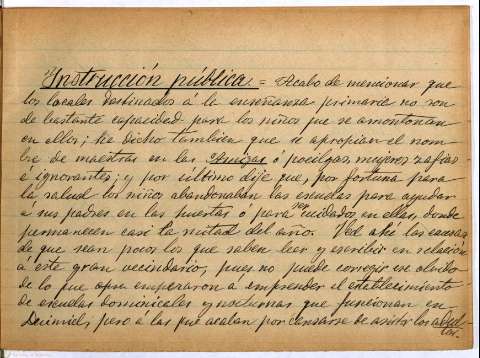 Instrucción pública = Acabo de mencionar que
los locales destinados á la enseñanza primaria no son
de bastante capacidad para los niños que se amontonan
en ellos; he dicho tambien que se apropian el nom-
bre de maestras en las Amigas ó pocilgas, mujeres zafias
é ignorantes; y por último dije que, por fortuna para
la salud los niños abandonaban las escuelas para ayudar
á sus padres en las huertas ó para ser cuidados en ellas, donde
permanecen casi la mitad del año. Ved ahí las causas
de que sean pocos los que saben leer y escribir en relación
á este gran vecindario, pues no puede corregir ese olvido
de lo que empezaron á emprender el establecimiento
de escuelas dominicales y nocturnas que funcionan en
Daimiel, pero á las que acaban por cansarse de asistir los adul-
tos.